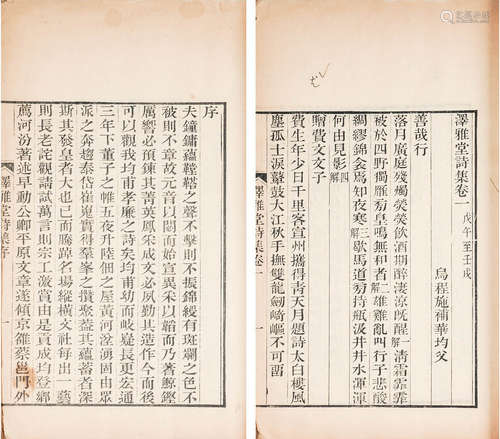 序
夫鐘鏞蘊鞺鞳之聲不擊不振錦綉有斑斕之色不
被則不章故元音以閟而始宣異采以韜而乃著鯨鏗
厲響必須鍊其菁英鳳采成文必夙勤其造作今而後
可以觀我均甫孝廉之詩矣均甫幼而岐嶷長更宏通
三年下董子之帷五夜升陸佃之屋黃河滃潏固由眾
派之奔趨泰岱崔嵬實得羣峯之攢聚蓋其蘊蓄者深
斯其發皇者大也已而騰踔名場縱橫文社每出一藝
則長老詫觀請試萬言則宗工激賞由是貢成均登鄉
薦河汾著述早動公卿平原文章遂傾京雒蔡邕門外
澤雅堂詩集序 一
澤雅堂詩集卷一 戊午至壬戌
烏程施補華均父
善哉行
落月廣庭殘燭熒熒飲酒期醉淒涼既醒一解清霜霏霏
被於四野獨雁匆皇鳴無和者二解雄雞亂叫行子悲酸
綢繆錦衾爲知夜寒三解歇馬道旁持瓶汲井井水渾渾
何由見影四解
贈費文文子
費生年少日千里客宣州攜得靑天月題詩太白樓風
塵孤士淚鼙鼓大江秋手撫雙龍劒崎嶇不可畱
澤雅堂詩集卷一 一